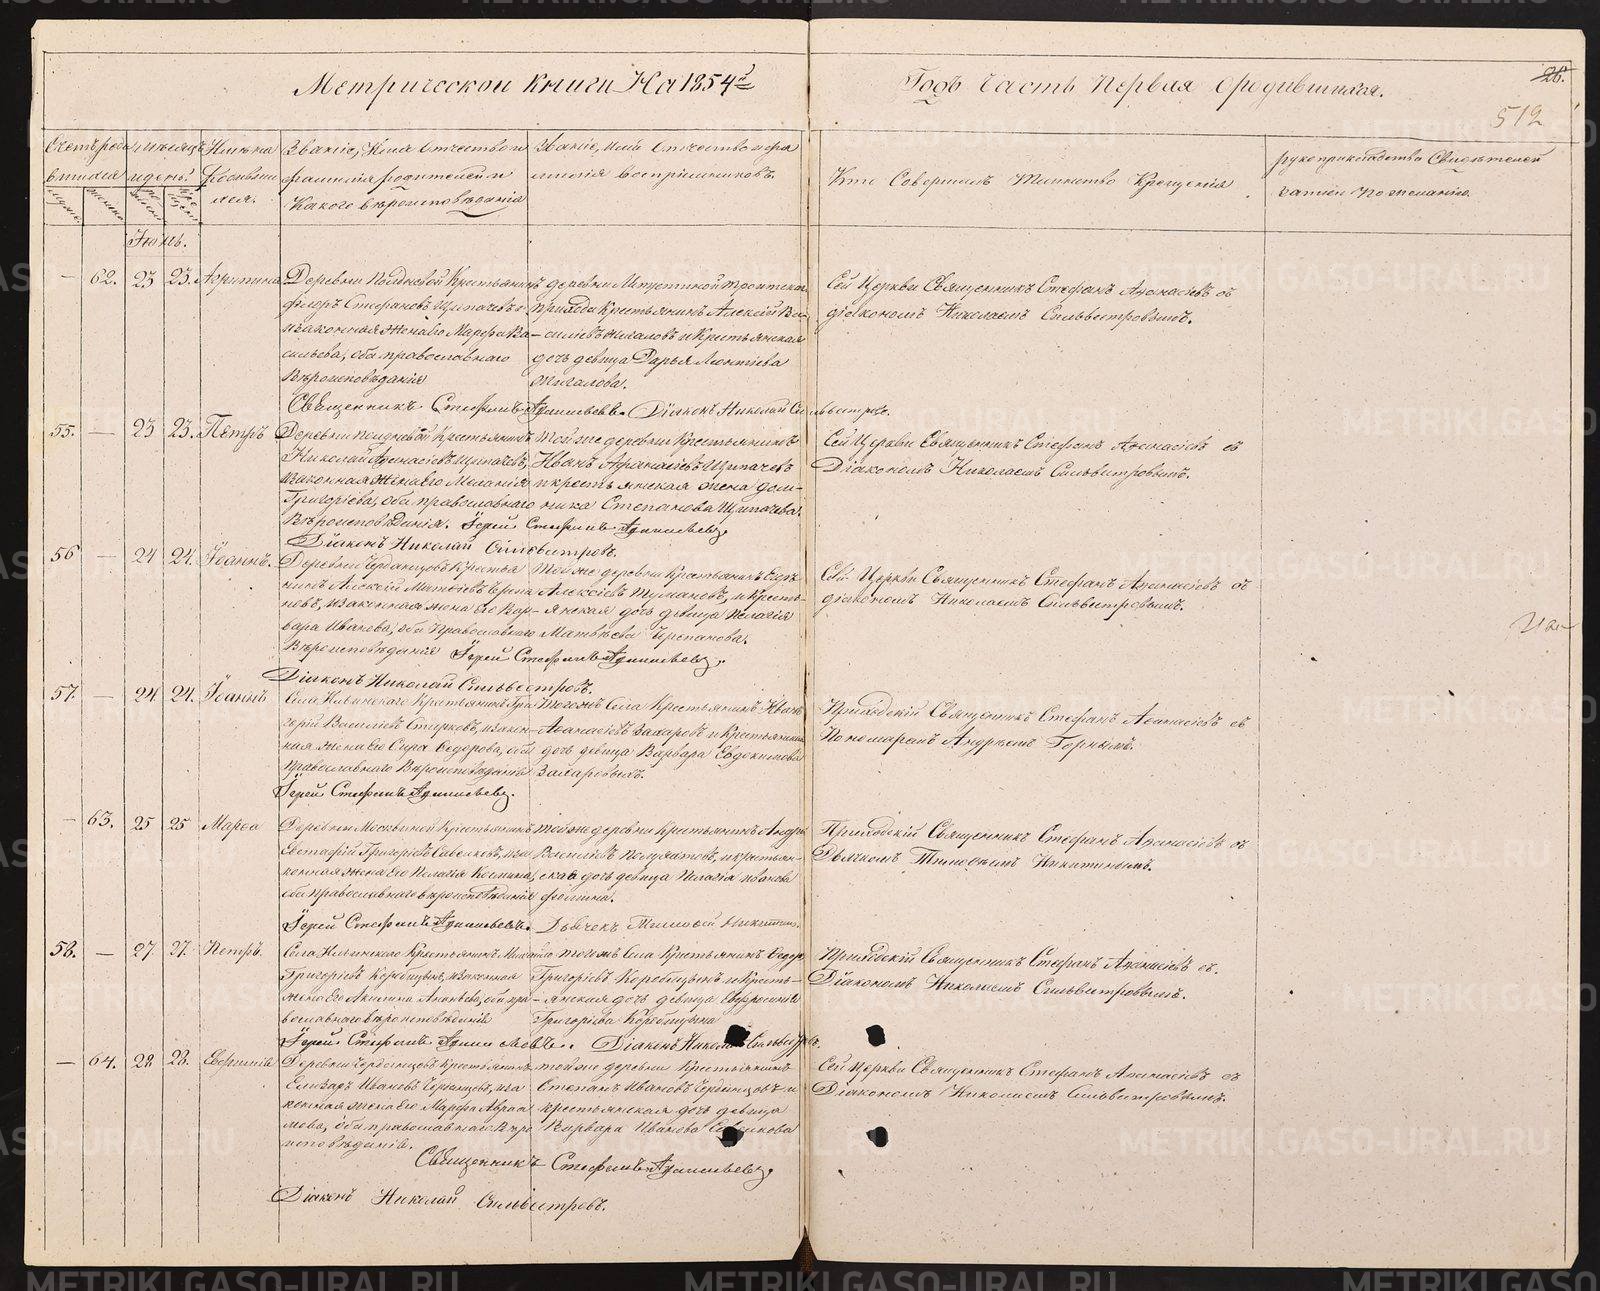 Метрической книги На 1854й
Годъ Часть Первая о родившихся.
26.
512
Счетъ роди
вшихся
Мѣсяцъ
и день.
Имена
родивших
ся.
Званіе, Имя Отчество и
фамилія родителей и
Какого вѣроисповѣданія
Званіе, имя Отчество и фа
милія воспріемниковъ.
Кто Совершалъ Таинство Крещенія
рукоприкладство Свидѣтелей
записи по желанію.
Іюнь.
62. 23 23. Агрипина
Крестьянинъ
Стефановъ Щипачевъ и
законная жена его Марфа Ва
сильева, оба православнаго
Вѣроисповѣданія
деревни
прихода Крестьянинъ Алексій Ва
сильевъ Жигаловъ и Крестьянская
дочь девица Дарья Леонтіева
Жигалова.
Сей Церкви Священникъ Стефанъ Аѳанасіевъ съ
діакономъ Николаемъ Сильвестровымъ.
Священникъ Стефанъ Аѳанасьевъ. Діаконъ Николай Сильвестровъ.
55. — 23 23. Петръ
Крестьянинъ
Николай Аѳанасіевъ Щипачевъ,
и законная жена его Меланія
Григоріева, оба православнаго
Вѣроисповѣданія.
Той же деревни Крестьянинъ
Иванъ Афанасіевъ Щипачевъ
и крестьянская жена Дом
ника Степанова Щипачева.
Сей Церкви Священникъ Стефанъ Аѳанасіевъ съ
Діакономъ Николаемъ Сильвестровымъ.
Іерей Стефанъ Аѳанасьевъ.
Діаконъ Николай Сильвестровъ.
56 — 24 24. Іоаннъ.
Деревни Черданцовъ Крестья
нинъ Алексій
законная жена Его Вар
вара Иванова, оба Православнаго
Вѣроисповѣданія
Той же деревни Крестьянинъ
Алексіевъ Тумановъ, и Кресть
янская дочь девица Пелагія
Матвѣева Черепанова.
Сей Церкви Священникъ Стефанъ Аѳанасіевъ съ
діакономъ Николаемъ Сильвестровымъ.
Іерей Стефанъ Аѳанасьевъ.
Діаконъ Николай Сильвестровъ.
57. — 24 24. Іоаннъ
Села Ильинскаго Крестьянинъ Гри
горій Василіевъ
жена Его Сира Ѳедорова, оба
православнаго Вѣроисповѣданія
Того жъ Села Крестьянинъ Иванъ
Аѳанасіевъ Захаровъ и Крестьянская
дочь девица Варвара Евдокимова
Захаровыхъ.
Приходскій Священникъ Стефанъ Аѳанасіевъ съ
Пономаремъ Андреемъ Горнымъ.
Іерей Стефанъ Аѳанасьевъ.
— 63. 25 25 Марѳа
Деревни Москвиной Крестьянинъ
Евстафій Григорьевъ Савелковъ, и за
конная жена Его Пелагія Козмина,
оба православнаго вѣроисповѣданія
той же деревни Крестьянинъ Андрей
Василіевъ и крестьян
ская дочь девица Пелагія Иванова
Фомина.
Приходскій Священникъ Стефанъ Аѳанасіевъ съ
Дьячкомъ Тимоѳеемъ Никитинымъ.
Іерей Стефанъ Аѳанасьевъ. Дьячекъ Тимоѳей Никитинъ.
58. — 27 27. Петръ.
Села Ильинскаго Крестьянинъ Михайло
Григоріевъ Коробицынъ, и законная
жена Его Акилина Ананьева, оба пра
вославнаго вѣроисповѣданія
того жъ Села Крестьянинъ Ѳедоръ
Григоріевъ Коробицынъ и Кресть
янская дочь девица Евфросинія
Григоріева Коробицына
Приходскій Священникъ Стефанъ Аѳанасіевъ съ
Діакономъ Николаемъ Сильвестровымъ.
Іерей Стефанъ Аѳанасьевъ. Діаконъ Николай Сильвестровъ.
— 64. 28 28. Евфимія
Деревни Черданцовъ Крестьянинъ
Елизаръ Ивановъ Черданцовъ, и за
конная жена Его Марфа Авраа
мова, оба православнаго Вѣро
исповѣданія.
той же деревни Крестьянинъ
Степанъ Ивановъ Черданцовъ и
крестьянская дочь девица
Варвара Иванова
Сей Церкви Священникъ Стефанъ Аѳанасіевъ съ
Діакономъ Николаемъ Сильвестровымъ.
Священникъ Стефанъ Аѳанасьевъ.
Діаконъ Николай Сильвестровъ.
METRIKI.GASO-URAL.RU